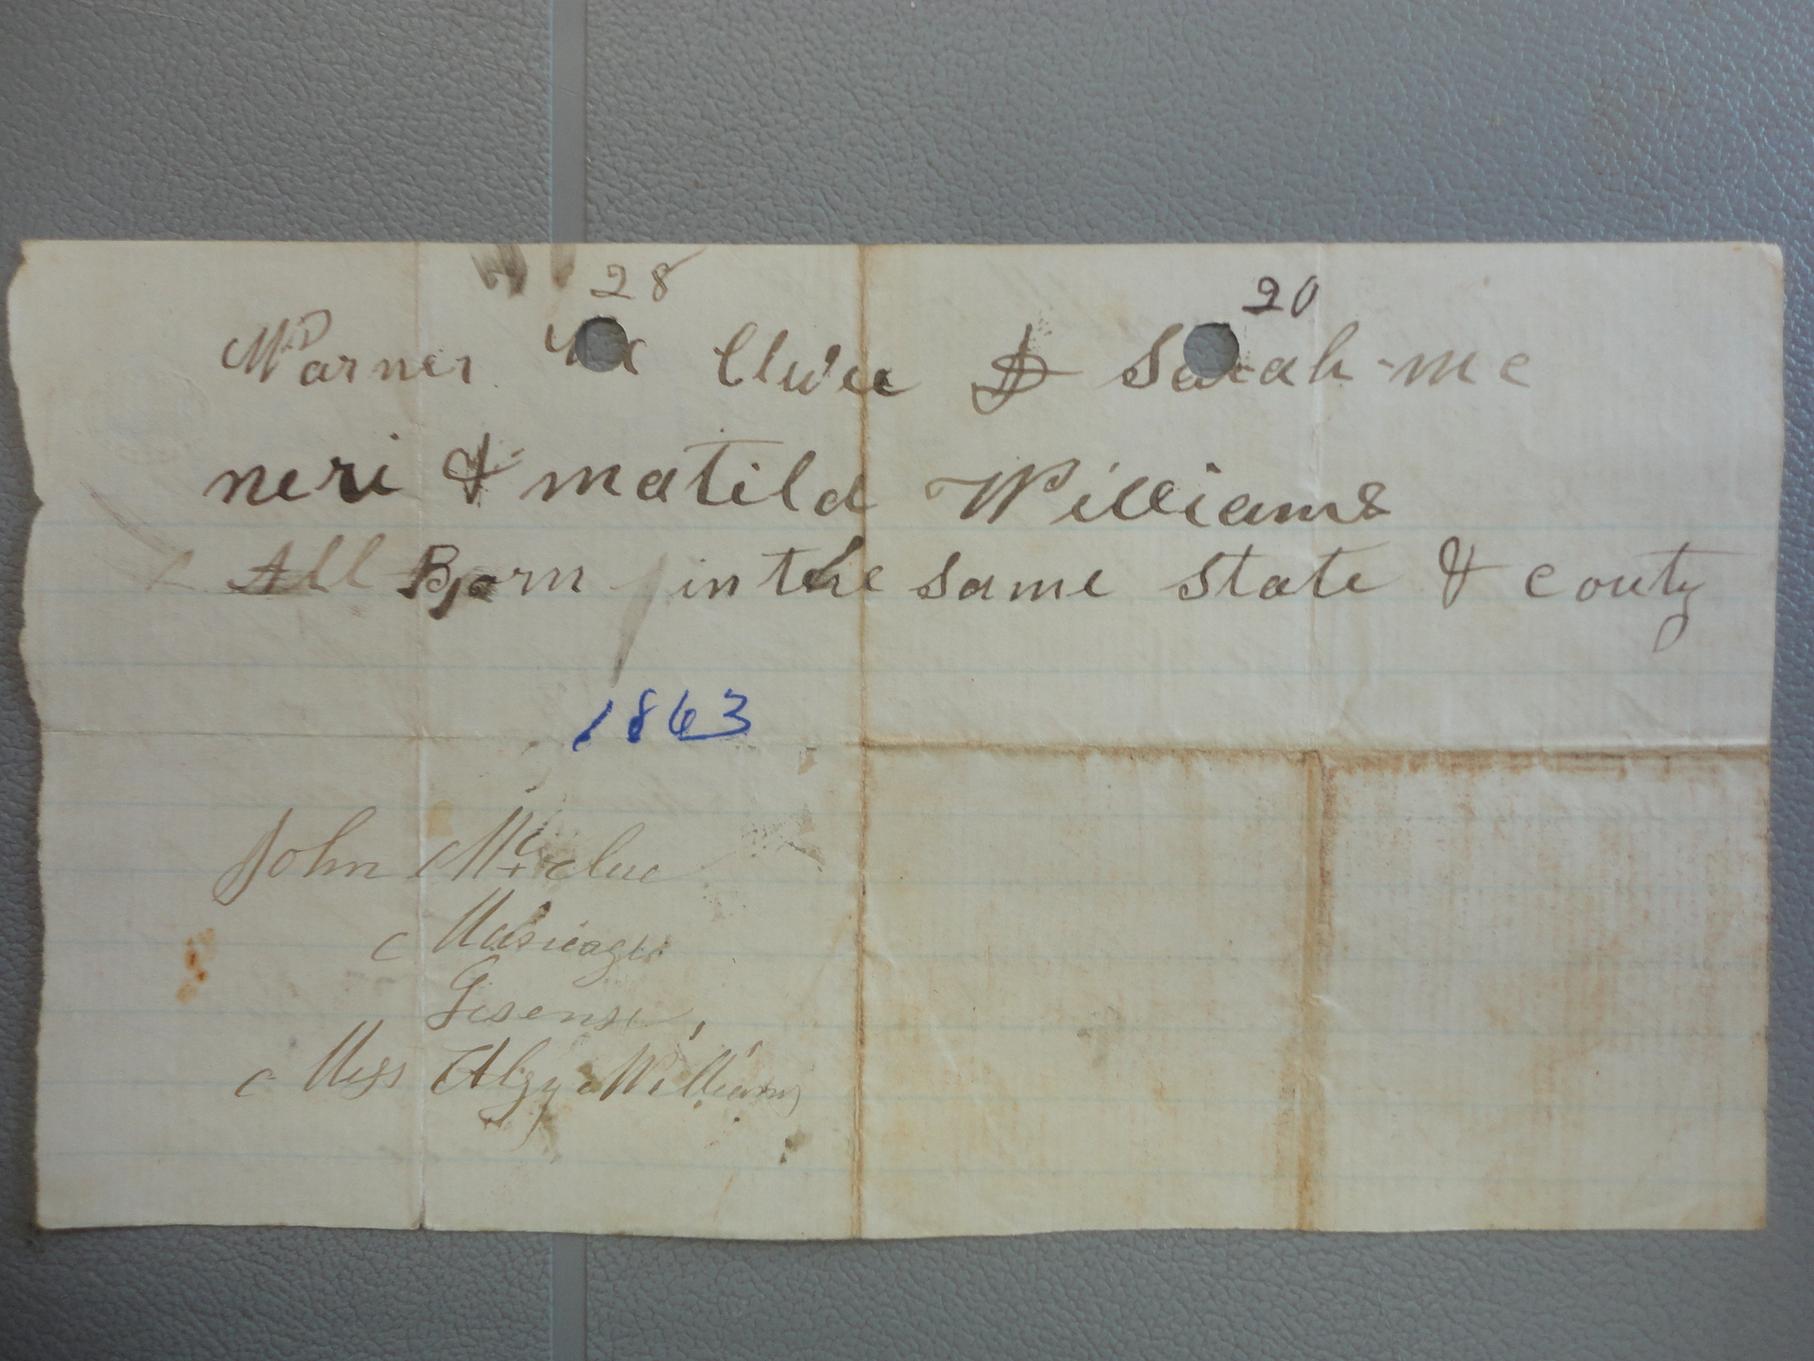 28 20
Warner Mc Clure & Sarah mc
neri & matild Williams
All Born in the same state & couty
1863
John Mcclue
Marieage
Lisense,
Miss Alzy Williams